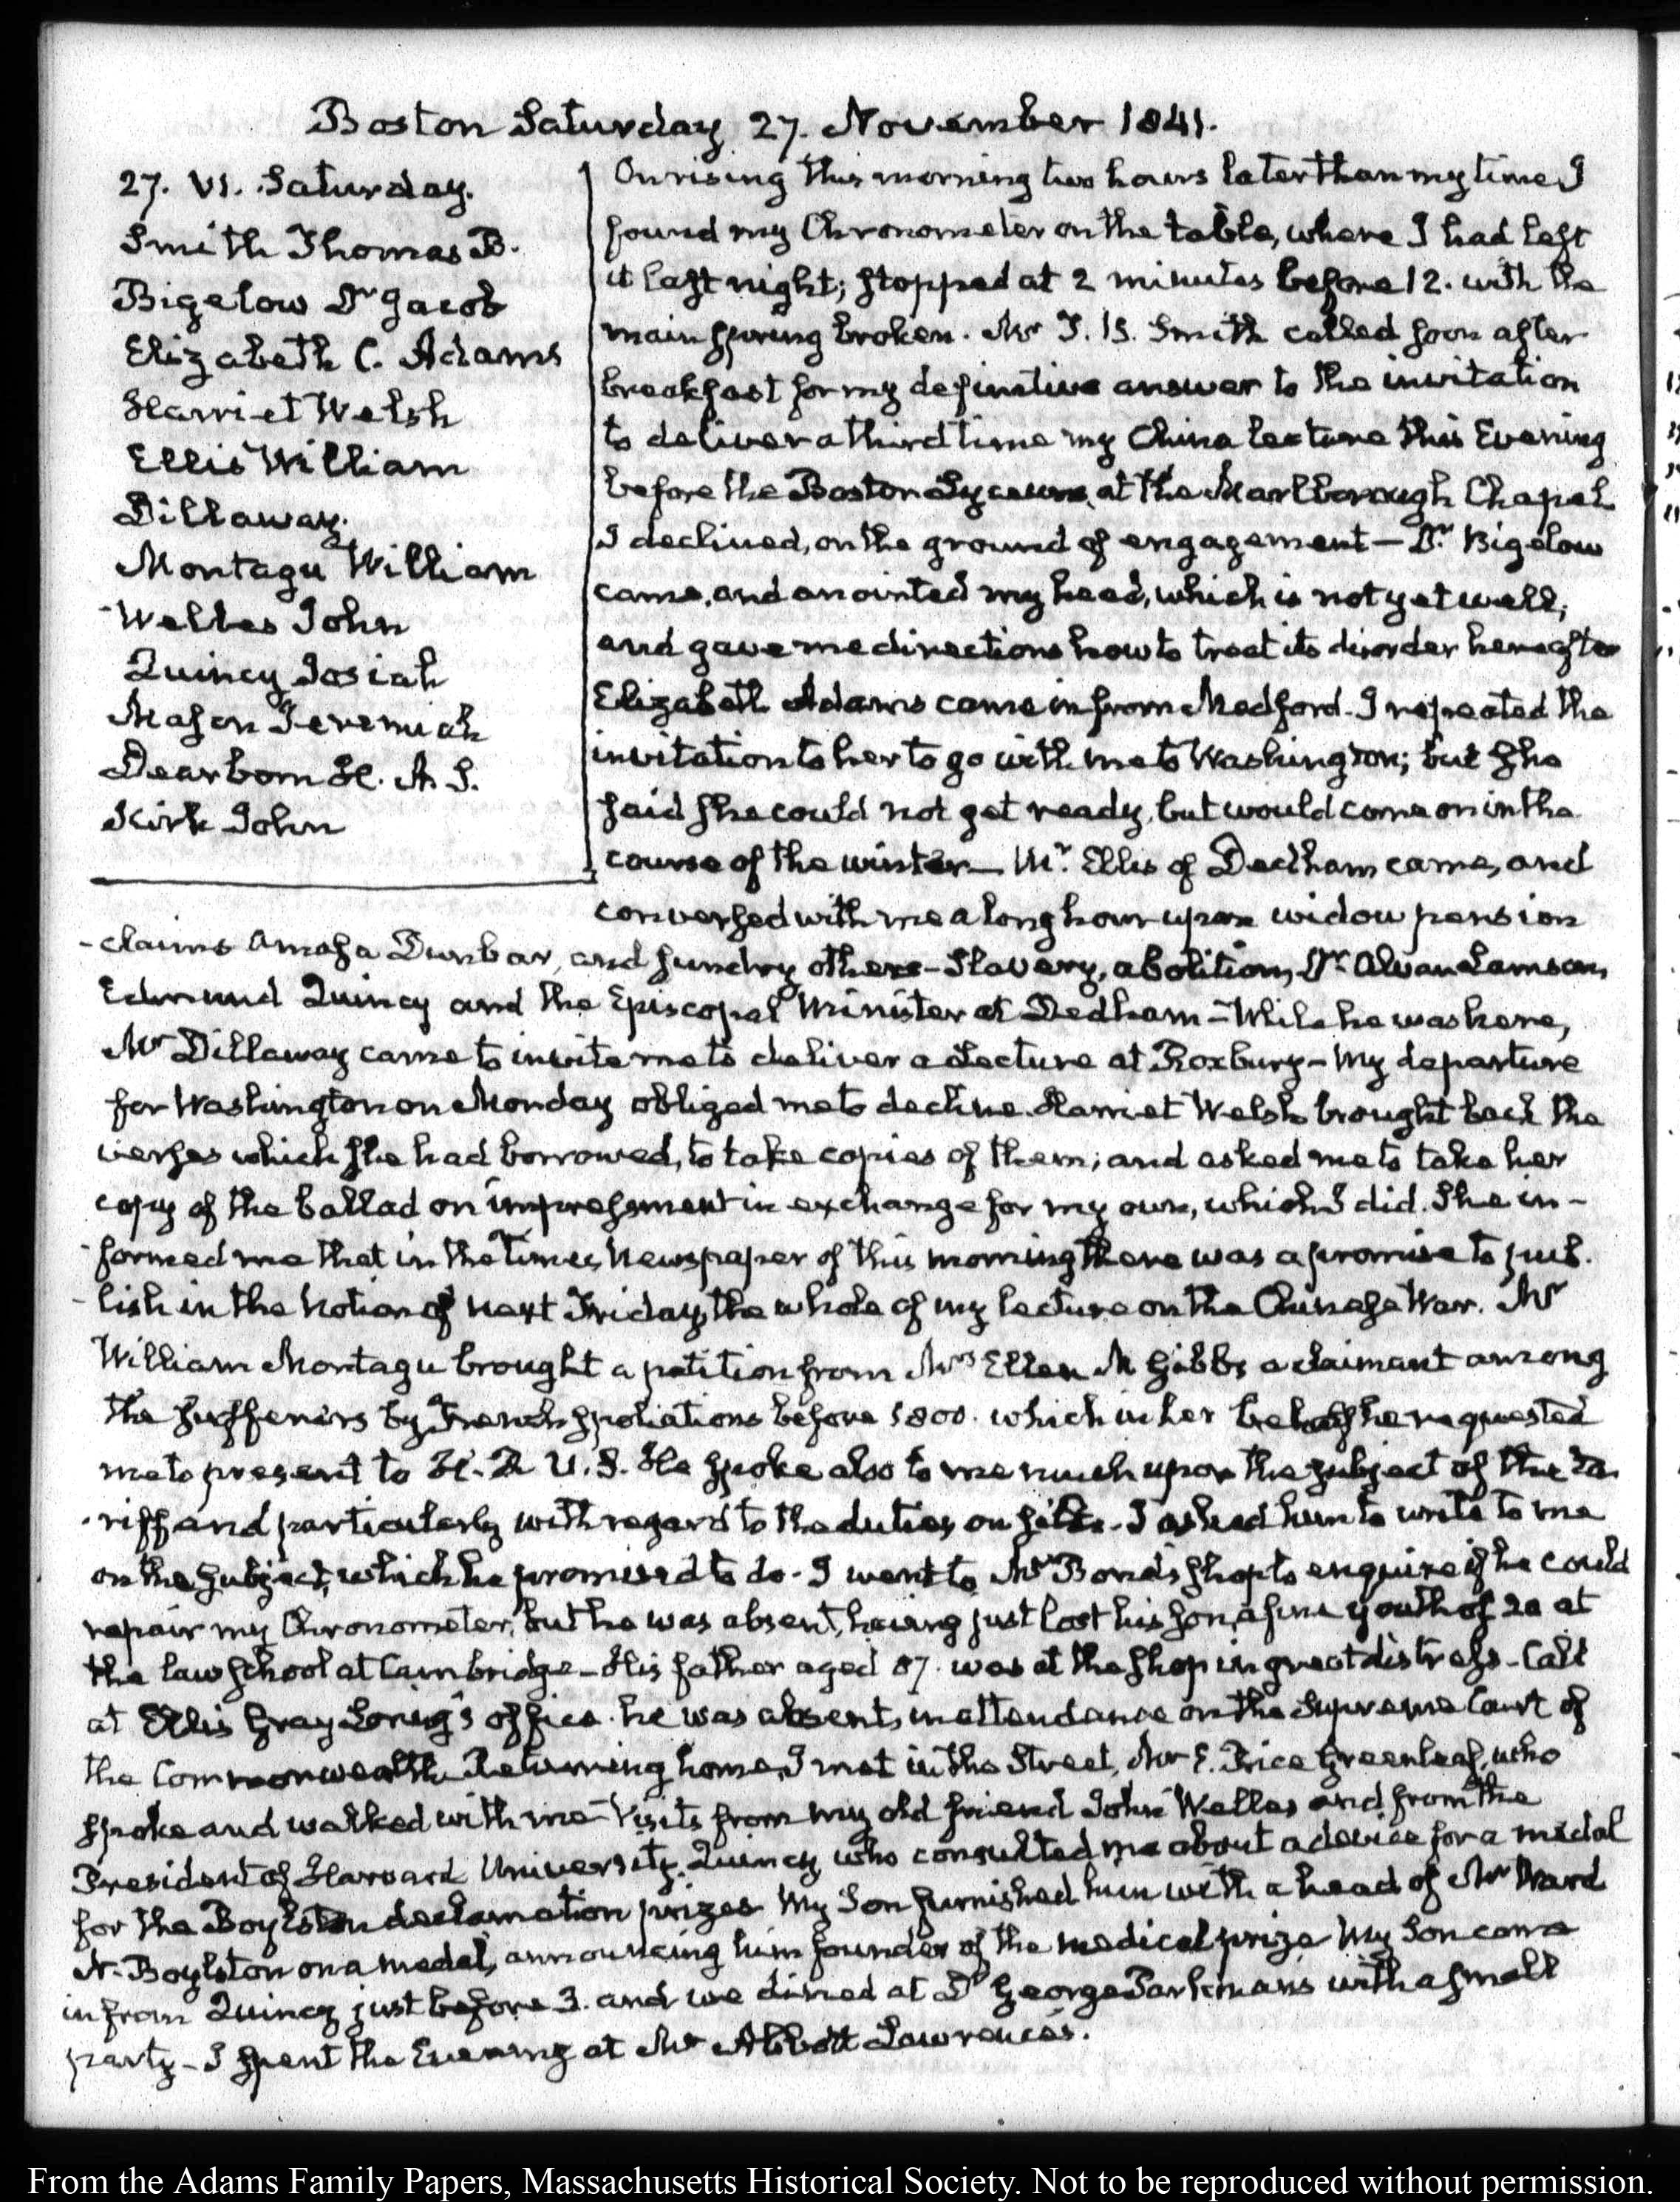 Boston Saturday 27. November 1841.
27. VI. Saturday.
Smith Thomas B.
Bigelow Dr. Jacob
Elizabeth C. Adams
Harriet Welsh
Ellis William
Dillaway.
Montagu William
Welles John
Quincy Josiah
Mason Jeremiah
Dearborn H. A. S.
Kirk John
On rising this morning two hours later than my time I
found my Chronometer on the table, where I had left
it last night; stopped at 2 minutes before 12. with the
main spring broken. Mr T. B. Smith called soon after
breakfast for my definitive answer to the invitation
to deliver a third time my China lecture this Evening
before the Boston Lyceum, at the Marlborough Chapel
I declined, on the ground of engagement — Dr. Bigelow
came, and anointed my head, which is not yet well;
and gave me directions how to treat its disorder hereafter
Elizabeth Adams came in from Medford. I repeated the
invitation to her to go with me to Washington; but she
said she could not get ready, but would come on in the
course of the winter — Mr. Ellis of Dedham came, and
conversed with me a long hour upon widow pension
claims Amasa Dunbar, and sundry others - Slavery, abolition, Dr. Alvan Lamson,
Edmund Quincy and the Episcopal Minister at Dedham - While he was here,
Mr Dillaway came to invite me to deliver a Lecture at Roxbury - My departure
for Washington on Monday obliged me to decline. Harriet Welsh brought back the
verses which she had borrowed, to take copies of them; and asked me to take her
copy of the ballad on impressment in exchange for my own, which I did. She in-
formed me that in the Times Newspaper of this morning there was a promise to pub-
lish in the Notion of next Friday, the whole of my lecture on the Chinese War. Mr
William Montagu brought a petition from Mrs Ellen M Gibbs a claimant among
the sufferers by French spoliations before 1800. which in her behalf he requested
me to present to H. R. U. S. He spoke also to me much upon the subject of the Ta-
riff and particularly with regard to the duties on silks - I asked him to write to me
on the subject, which he promised to do - I went to Mr Bond's shop to enquire if he could
repair my Chronometer, but he was absent, having just lost his son, a fine youth of 20 at
the law school at Cambridge - His father aged 87. was at the shop in great distress - Call
at Ellis Gray Loring's office. he was absent, in attendance on the Supreme Court of
the Commonwealth. Returning home, I met in the Street, Mr E. Price Greenleaf, who
spoke and walked with me - Visits from my old friend John Welles and from the
President of Harvard University, Quincy who consulted me about a device for a medal
for the Boylston declamation prizes My Son furnished him with a head of Mr Ward
N. Boylston on a medal, announcing him founder of the medical prize My Son came
in from Quincy just before 3. and we dined at Dr George Parkman's with a small
party - I spent the Evening at Mr Abbott Lawrence's.
From the Adams Family Papers, Massachusetts Historical Society. Not to be reproduced without permission.